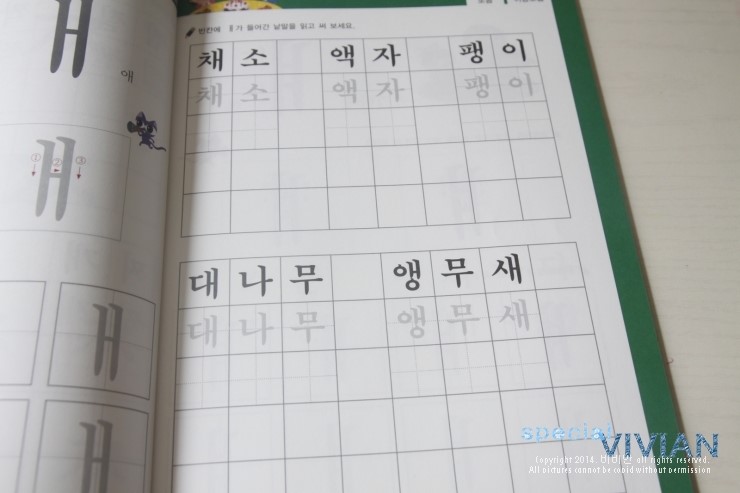 빈칸에 ㅐ가 들어간 낱말을 읽고 써 보세요.
채소 액자 팽이
채소 액자 팽이
대나무 앵무새
대나무 앵무새
ㅐ
애
① ② ③
ㅐ
ㅐ
ㅐ
special VIVIAN
Copyright 2014. 비비안 all rights reserved.
All pictures cannot be copid without permission